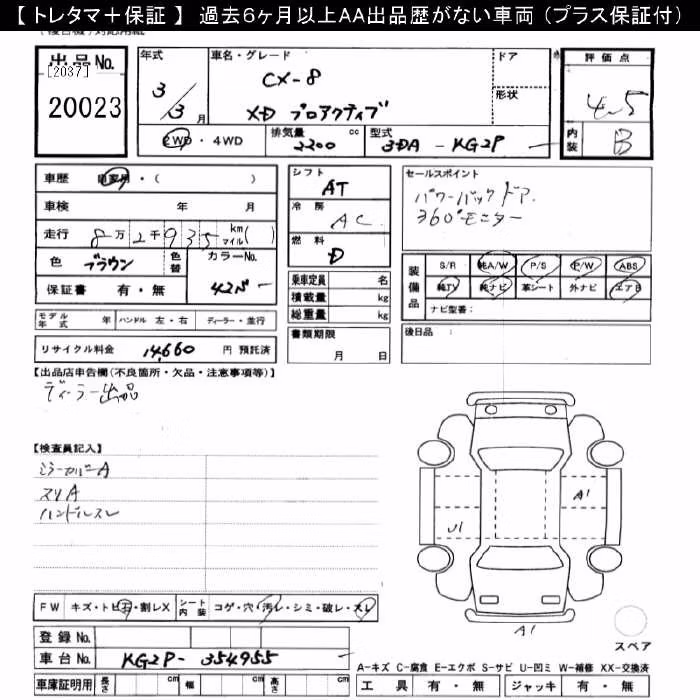 【 トレタマ＋保証 】 過去６ヶ月以上ＡＡ出品歴がない車両（プラス保証付）
出品No. [2037] 20023
年式 3/3月
車名・グレード CX-8
XD プロアクティブ
ドア
形状
評価点 4.5
内装 B
2WD ・ 4WD
排気量 2200 cc
型式 3DA - KG2P
車歴 自家用・（ ）
車検 年 月
走行 8万2千935 km マイル( )
色 ブラウン 色替 カラーNo. 42S
保証書 有・無
シフト AT
冷房 AC
燃料 D
乗車定員 名
積載量 kg
総重量 kg
書類期限
月 日
セールスポイント
パワーバックドア.
360°モニター
装備品 S/R 純A/W P/S P/W ABS
純TV 純ナビ 革シート 外ナビ エアB
ナビ型番：
後日品：
モデル年式 年 ハンドル 左・右 ディーラー・並行
リサイクル料金 14,660 円 預託済
【出品店申告欄(不良箇所・欠品・注意事項等)】
ディーラー出品
【検査員記入】
ミラーカバーA
スリA
ハンドルスレ
A1
U1
A1
スペア
FW キズ・トビ石・割レX シート内装 コゲ・穴・汚レ・シミ・破レ・スレ
登録 No.
車台 No. KG2P- 354955
車庫証明用 長さ cm 幅 cm 高さ cm
A-キズ C-腐食 E-エクボ S-サビ U-凹ミ W-補修 XX-交換済
工具 有・無 ジャッキ 有・無